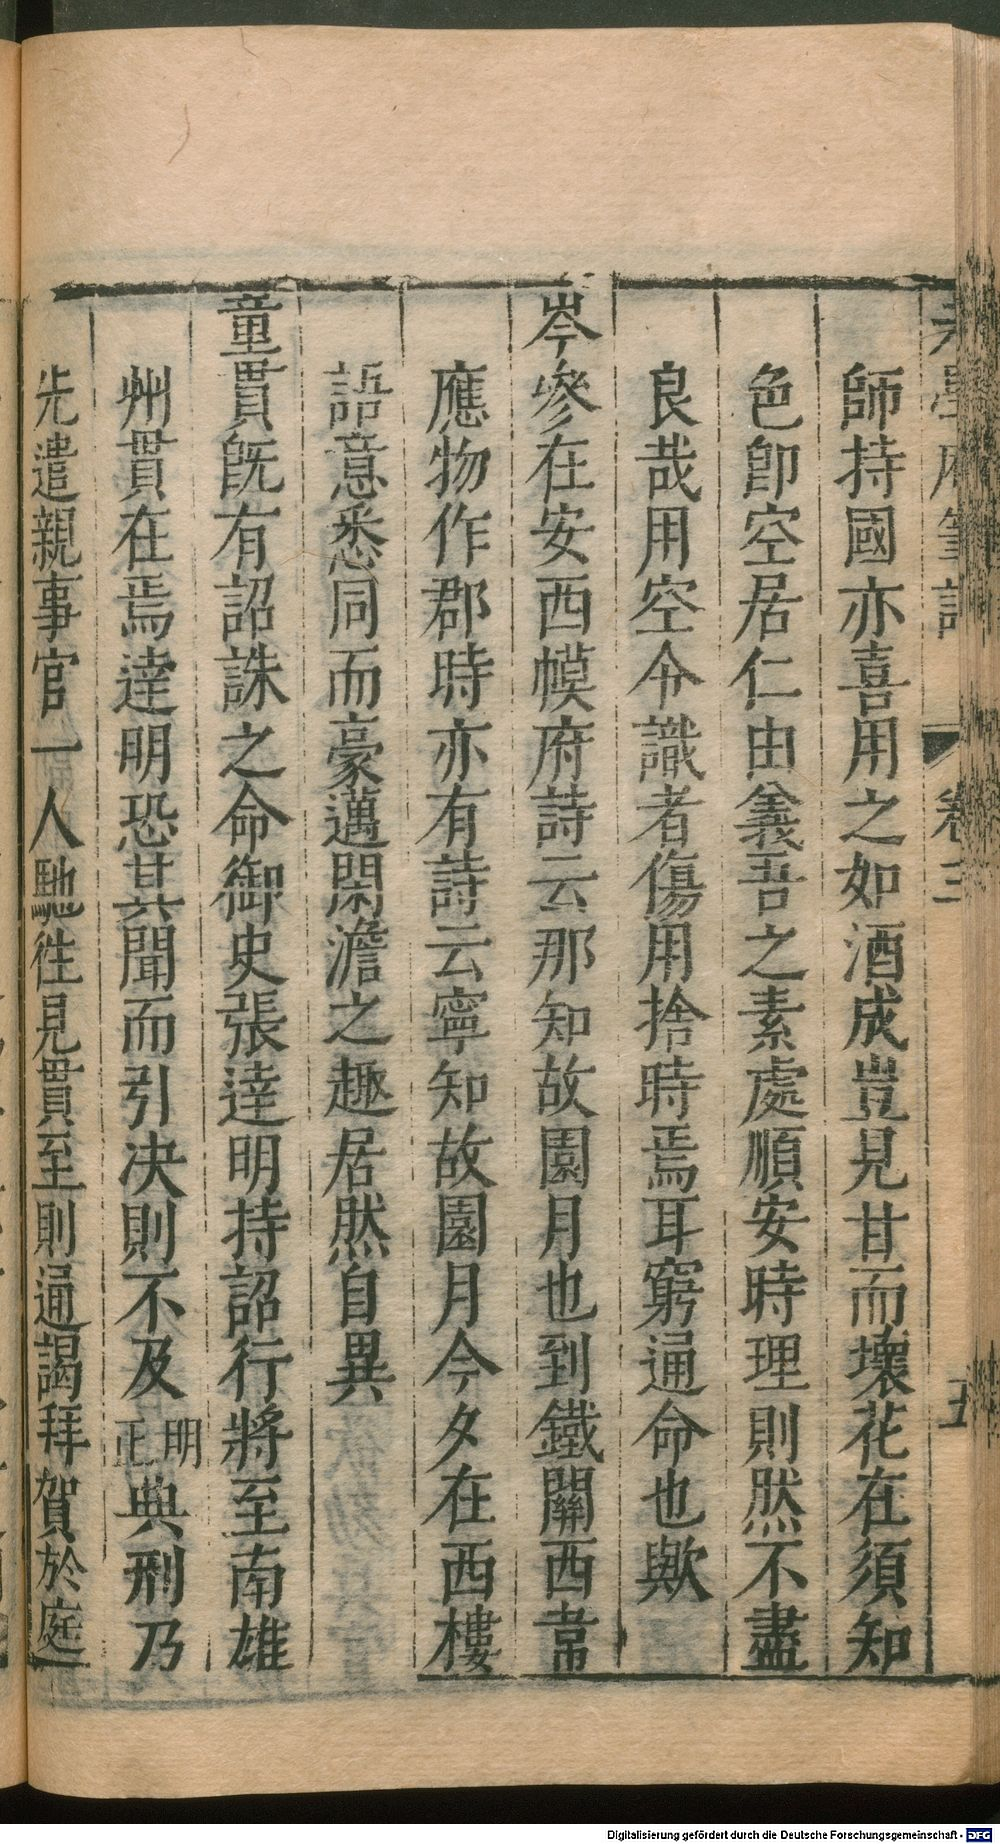 老學庵筆記 卷三 五
師持國亦喜用之如酒成豈見甘而壞花在須知
色卽空居仁由義吾之素處順安時理則然不盡
良哉用空令識者傷用捨時焉耳窮通命也歟
岑參在安西幙府詩云那知故園月也到鐵關西韋
應物作郡時亦有詩云寧知故園月今夕在西樓
語意悉同而豪邁閑澹之趣居然自異
童貫旣有詔誅之命御史張達明持詔行將至南雄
州貫在焉達明恐其聞而引决則不及明正典刑乃
先遣親事官一人馳徃見貫至則通謁拜賀於庭
Digitalisierung gefördert durch die Deutsche Forschungsgemeinschaft - DFG